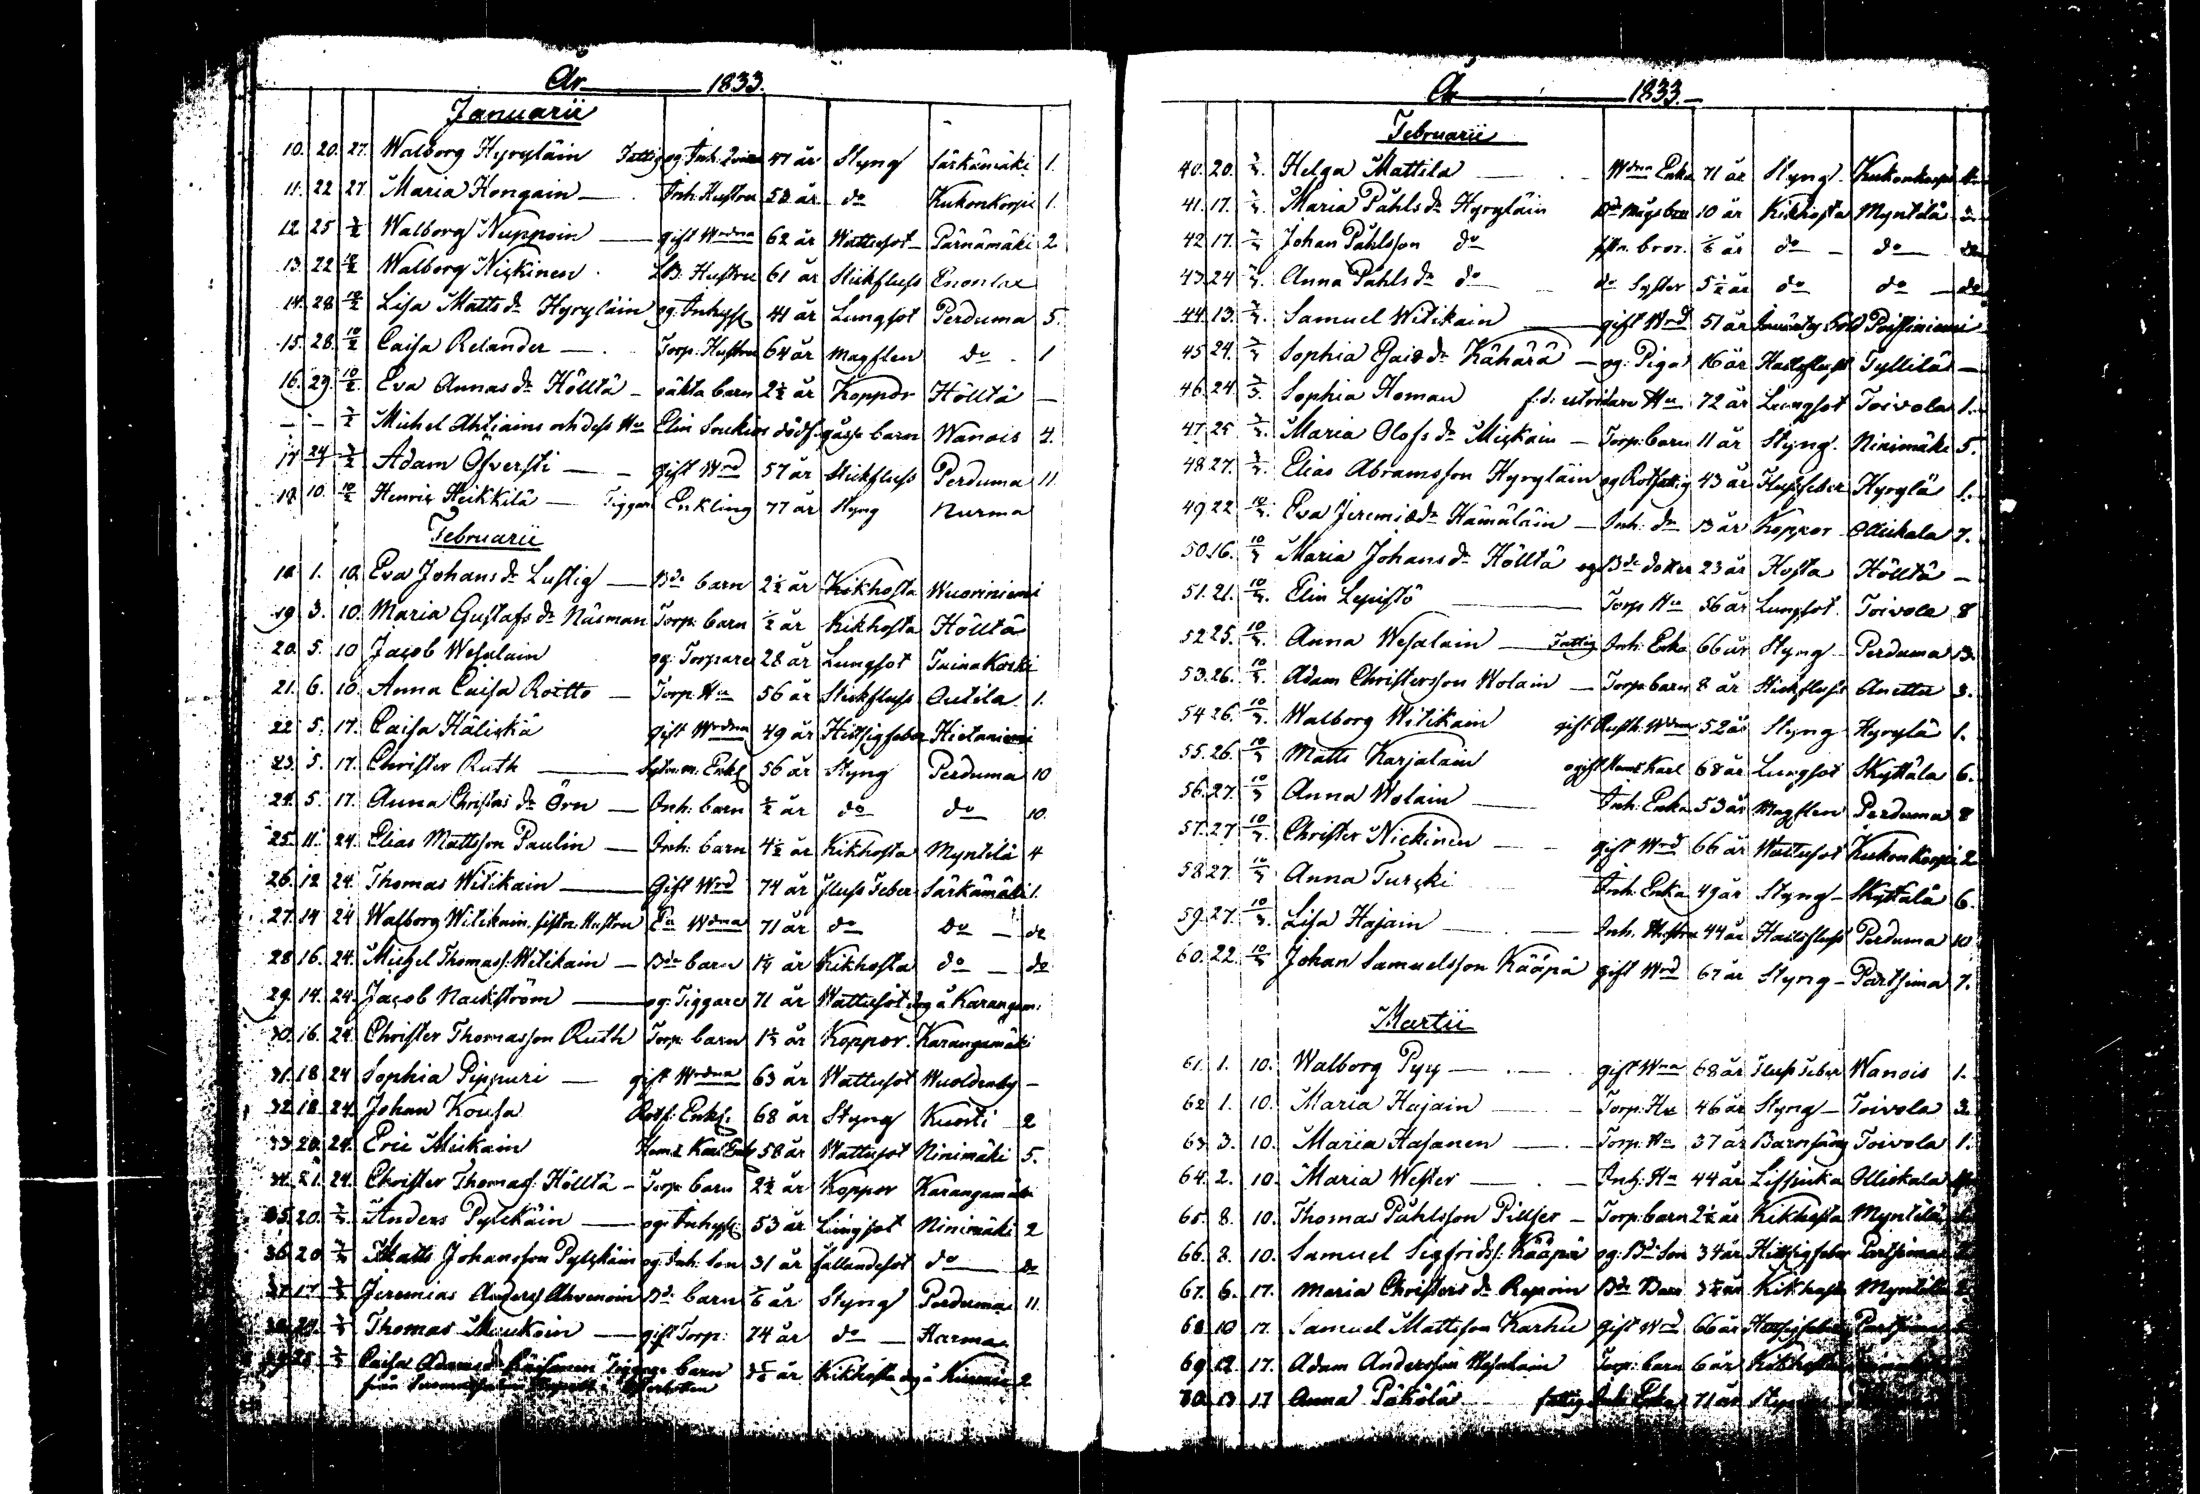 År 1833.
Januarii
10. 20. 27. Walborg Hyryläin Fattig og. Inh. Qvinna 47 år Styng Särkämäki 1.
11. 22 27. Maria Hongain Inh. Hustru 53 år do Kukonkorpi 1.
12 25 3/2 Walborg Nuppoin gift Wärdna 62 år Wattusot Pärnämäki 2
13. 22 10/2 Walborg Nickinen Hustru 61 år Stickfluss
14. 28 10/2 Lisa Matts dr Hyryläin og. Inhyss 41 år Lungsot Perduma 5.
15. 28. 10/2 Caisa Relander Torp. Hustru 64 år Magplen do 1
16. 29. 10/2 Eva Annas dr Hölltä oäkta barn 2½ år Koppor Hölltä
- - 3/2 Michel Ahtiains och dess Hu Elin Soukias dödf. gosse barn Wanois 4.
17 24 3/2 Adam Öfversti gift Wrd 57 år Stickfluss Perduma 11
18 10. 10/2 Henric Heikkilä Tiggare Enkling 77 år Styng Nurma
Februarii
18. 1. 10. Eva Johans dr Lustig Bde barn 2½ år Kikhosta Wuoriniemi
19 3. 10. Maria Gustafs dr Näsman Torp. barn ½ år Kikhosta Hölltä
20. 5. 10 Jacob Wesalain og. Torpare 28 år Lungsot Tainakoski
21. 6. 10. Anna Caisa Roitto Torp. Hu 56 år Stickfluss Autila 1.
22 5. 17. Caisa Häliskä gift Wrdna 49 år Hitsigfeber Hietaniemi
23. 5. 17. Christer Ruth Enkl 56 år Styng Perduma 10
24. 5. 17. Anna Christers dr Örn Inh. barn ½ år do do 10.
25. 11. 24. Elias Mattsson Paulin Inh. barn 4½ år Kikhosta Myntilä 4
26. 12 24. Thomas Witikain Gift Wrd 74 år Fluss Feber Särkämäki 1.
27. 14 24 Walborg Witikain, sistn. Hustru Ea Wrdna 71 år do do do
28 16. 24. Michel Thomass. Witikain Bde barn 1¼ år Kikhosta do do
29. 14. 24. Jacob Nackström og. Tiggare 71 år Wattusot dog å Karangam:
30. 16. 24. Christer Thomasson Ruth Torp. barn 1½ år Koppor. Karangamäki
31. 18 24 Sophia Pippuri gift Wrdna 63 år Wattusot Wuoldenby
32 18. 24. Johan Kousa Rotf. Enkl. 68 år Styng Kuorti 2
33 20. 24. Eric Miikain Hem. Karl Enkl 58 år Wattusot Ninimäki 5.
34. 21. 24. Christer Thomass. Hölltä Torp. barn 2½ år Koppor Karangamäki
35. 20. 3/3 Anders Pylckäin og. Inhyss. 53 år Lungsot Ninimäki 2
36. 20 3/3 Matts Johansson Pylckäin og. Inh. Son 31 år fallandesot do do
37. 17 3/3 Jeremias Anderss Ahvenoin Bde barn år Styng Perduma 11.
38. 3/3 Thomas Muukoin gift Torp. 74 år do Harma
39. 28 3/3 Caisa Adams dr Räisänen Tiggare barn år Kikhosta dog å 2
från Österbotten
År 1833.
Februarii
40. 20. 3/3. Helga Mattila Wdna Enka 71 år Styng. Kukonkorpi
41. 17. 3/3. Maria Påhls dr Hyryläin Bd Mågs barn 10 år Kikhosta Myntilä
42 17. 3/3 Johan Påhlsson do sistn. bror. år do do do
43. 24 3/3. Anna Påhls dr do do Syster 5½ år do do do
44. 13. 3/3. Samuel Witikain gift Wrd 51 år Poitsiniemi
45 24. 3/3 Sophia Gaisdr Kähärä og. Piga 16 år Halsfluss Tyllilä
46. 24 3/3. Sophia Homan f.d. utridare Hu 72 år Lungsot Toivola 1.
47. 25 3/3. Maria Olofs dr Miskain Torp. barn 11 år Styng. Ninimäki 5.
48. 27. 3/3. Elias Abramsson Hyryläin og Rotfattig 43 år Flussfeber Hyrylä 1.
49 22 10/3. Eva Jeremiædr Hämäläin Inh. dr 13 år Koppor Ollikala 7.
50. 16. 10/3 Maria Johans dr Hölltä og Bde dotter 23 år Hosta Hölltä
51. 21. 10/3. Elin Lepistö Torp Hu 56 år Lungsot. Toivola 8
52 25. 10/3. Anna Wesalain Fattig Inh. Enka 66 år Styng Perduma 13.
53. 26. 10/3. Adam Christersson Wolain Torp. barn 8 år Stickfluss Anttila 3.
54 26. 10/3. Walborg Witikain gift Rusth. Wdna 52 år Styng Hyrylä 1.
55. 26. 10/3 Matts Karjalain ogift Hem. Karl 68 år Lungsot Skyttälä 6.
56. 27. 10/3 Anna Wolain Inh. Enka 53 år Magplen Perduma 8
57. 27 10/3. Christer Nickinen gift Wrd 66 år Wattusot Kukonkorpi 2
58. 27. 10/3 Anna Turcki Inh. Enka 49 år Styng Skyttälä 6.
59. 27. 10/3. Lisa Hajain Inh. Hustru 44 år Halsfluss Perduma 10
60. 22. 10/3 Johan Samuelsson Kääpä gift Wrd 67 år Styng Partsima 7.
Martii
61. 1. 10. Walborg Pyy gift Wna 68 år Fluss feber Wanois 1.
62 1. 10. Maria Hajain Torp. Hu 46 år Styng Toivola 3.
63 3. 10. Maria Hasanen Torp. Hu 37 år Barnsäng Toivola 1.
64. 2. 10. Maria Wester Inh. Hu 44 år Ollikala
65. 8. 10. Thomas Påhlsson Pillser Torp: barn 2½ år Kikhosta Myntilä
66. 2. 10. Samuel Sigfridss. Kääpä og. Bd. Son 34 år Hitsigfeber Partsima
67. 6. 17. Maria Christers dr Repoin Bde Barn 3½ år Kikhosta Myntilä
68 10 17. Samuel Mattsson Karhu gift Wrd 66 år Hitsigfeber Partsima
69 12. 17. Adam Andersson Wesalain Torp. barn 6 år Kikhosta
70. 13 17 Anna Päkölä fattig Inh. Enka 71 år Styng